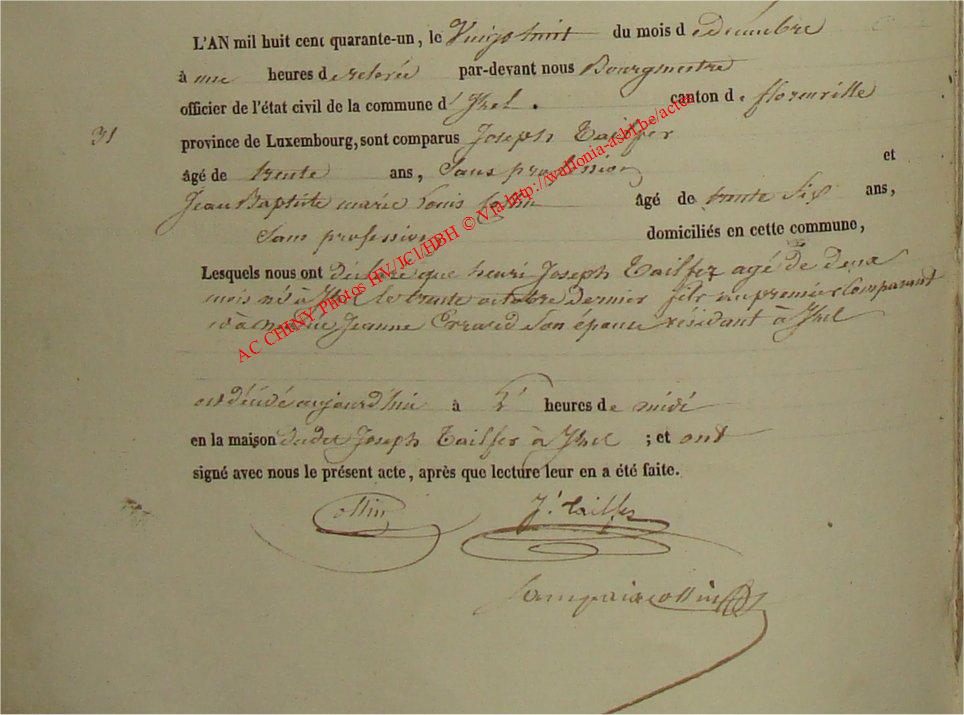 L'AN mil huit cent quarante-un, le Vingt huit du mois d e décembre
à une heures d e relevée par-devant nous Bourgmestre
officier de l'état civil de la commune d' Izel. canton de florenville
31
province de Luxembourg, sont comparus Joseph Tailfer
âgé de trente ans, Sans profession et
Jean Baptiste marie Louis Collin âgé de trente Six ans,
Sans profession domiciliés en cette commune,
Lesquels nous ont déclaré que henri Joseph Tailfer agé de deux
mois né à Izel le trente octobre dernier fils au premier Comparant
et à Jeanne Errard Son épouse résidant à Izel
est décédé aujourd'hui à heures de midi
en la maison dudit Joseph Tailfer à Izel ; et ont
signé avec nous le présent acte, après que lecture leur en a été faite.
Collin J. Tailfer
AC CHINY Photos HV/JCl/HBH © Via http://wallonia-asbl.be/actes